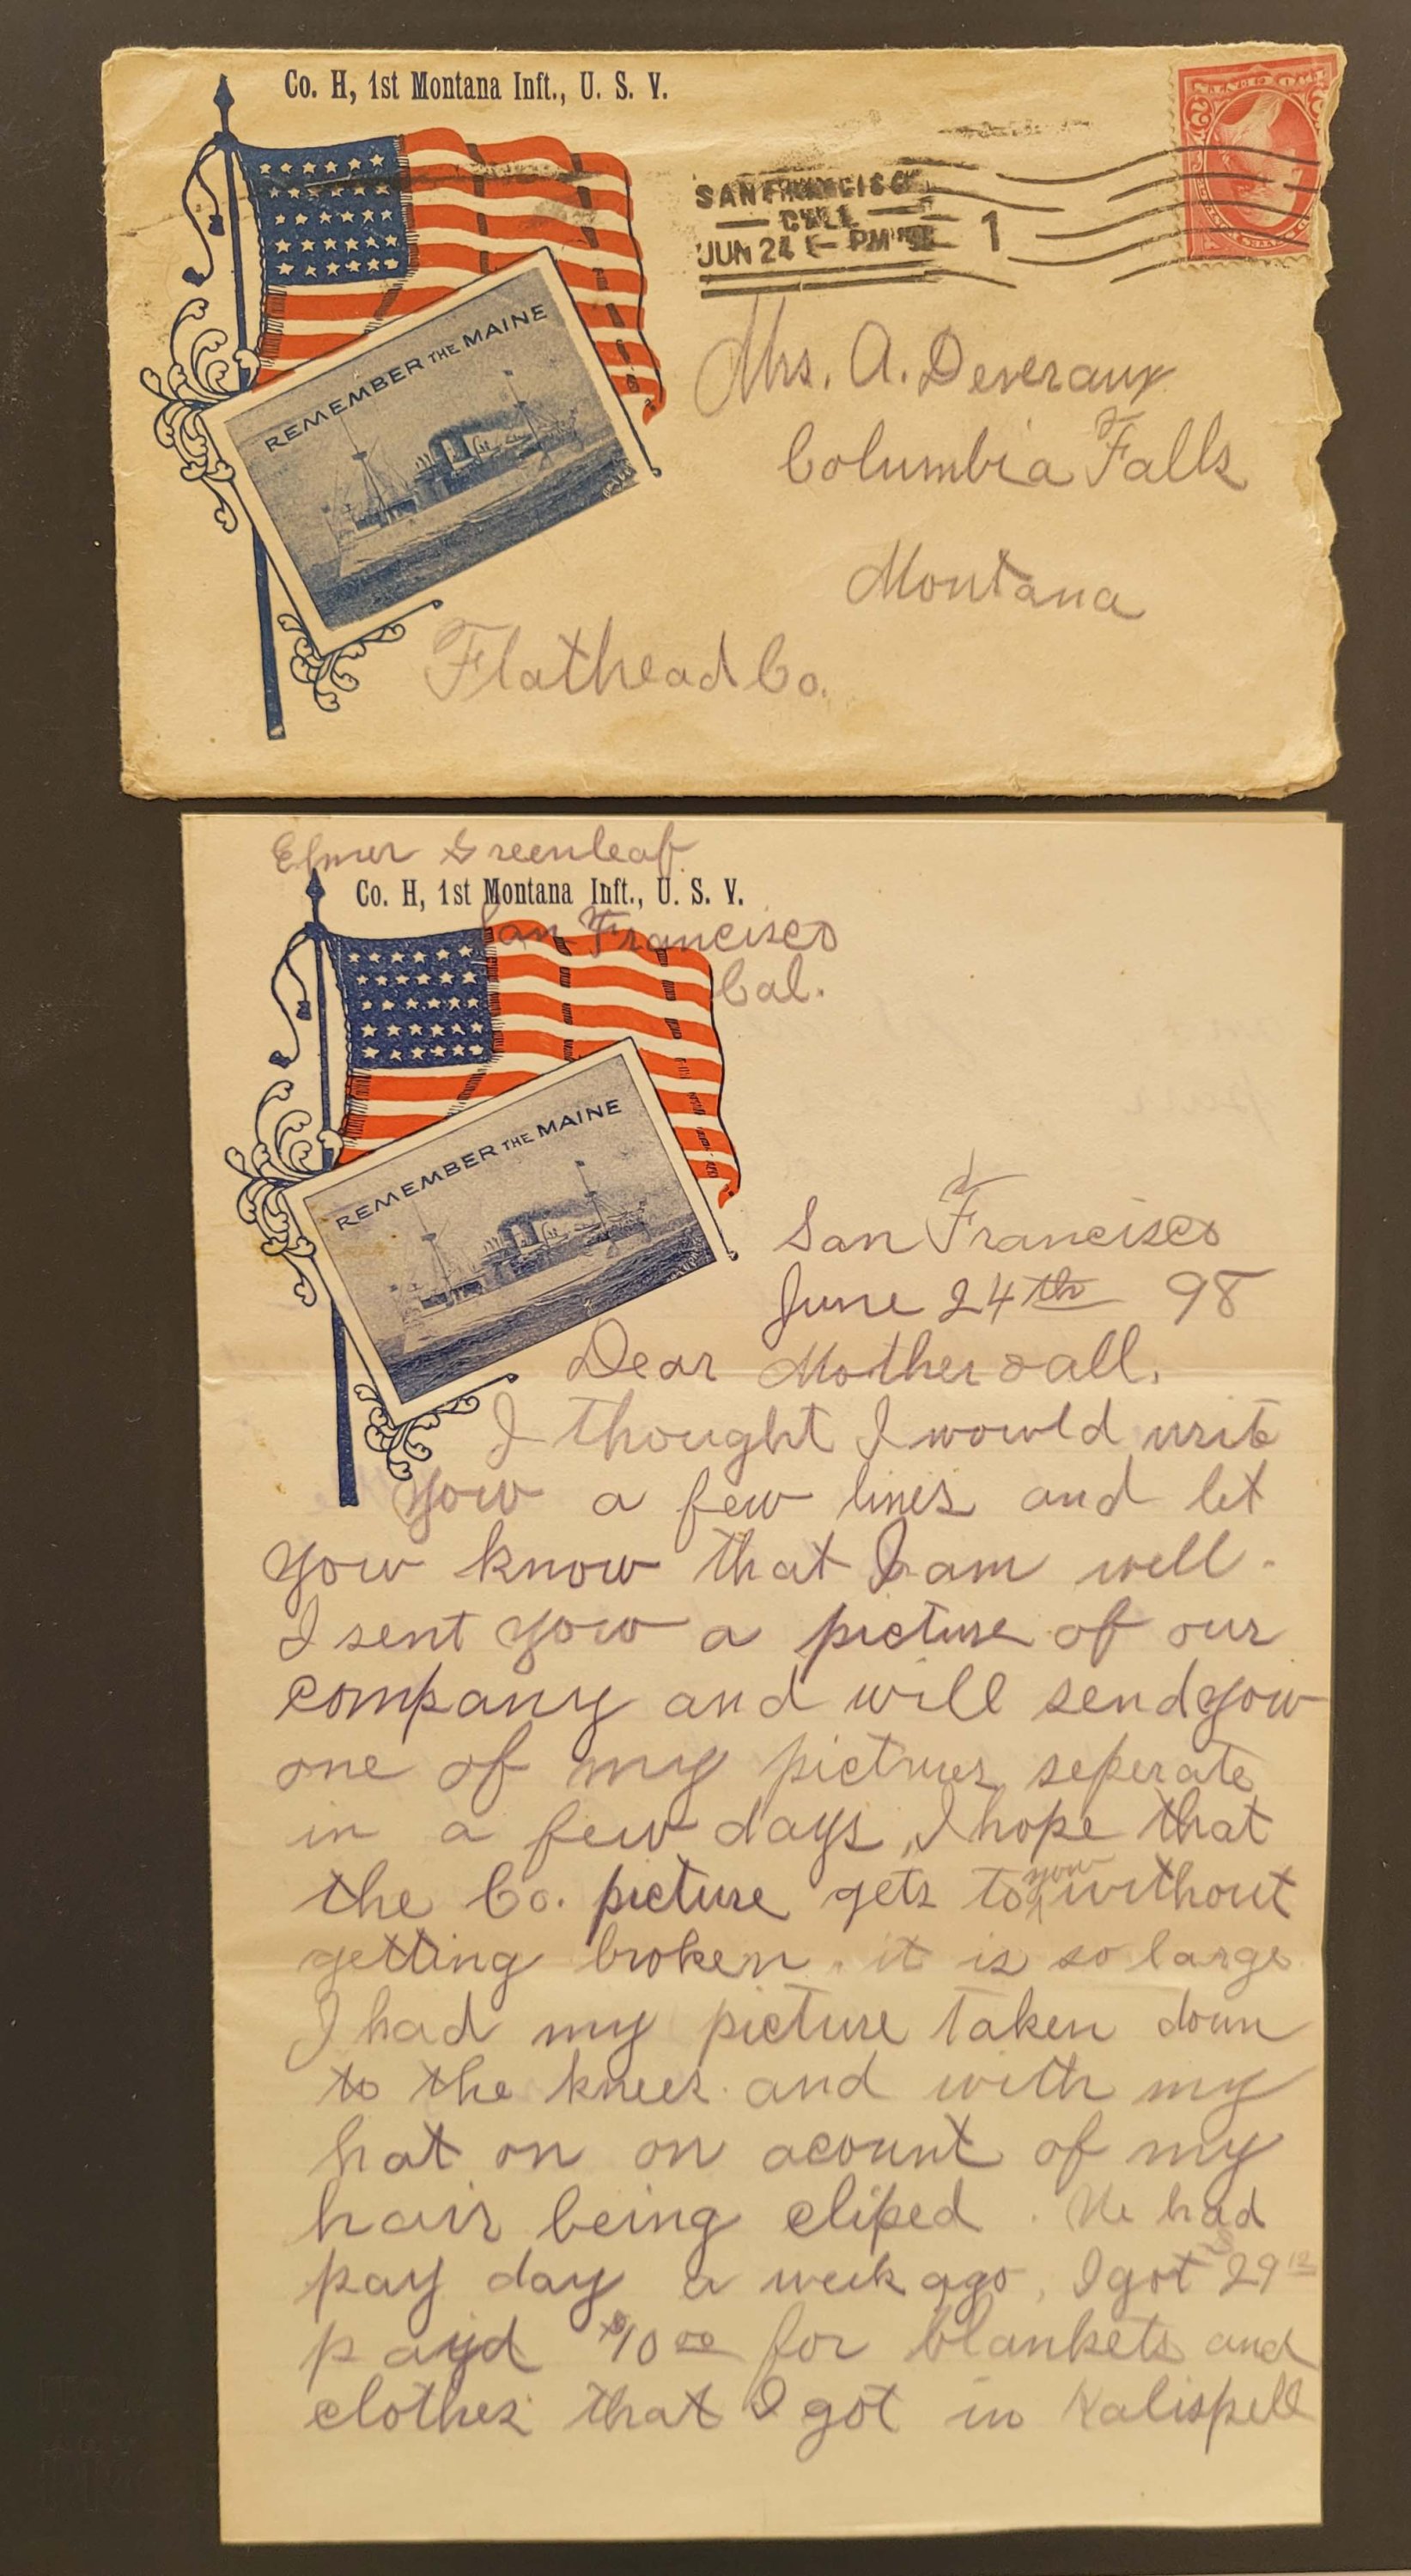 Co. H, 1st Montana Inft., U. S. V.
REMEMBER THE MAINE
SAN FRANCISCO
CAL.
JUN 24 PM 98 1
Mrs. A. Deveraux
Columbia Falls
Montana
Flathead Co.
Elmer Greenleaf
Co. H, 1st Montana Inft., U. S. V.
San Francisco
Cal.
REMEMBER THE MAINE
San Francisco
June 24th 98
Dear Mother & all.
I thought I would write
you a few lines and let
you know that I am well.
I sent you a picture of our
company and will send you
one of my pictures seperate
in a few days, I hope that
the Co. picture gets to you without
getting broken. it is so large
I had my picture taken down
to the knees. and with my
hat on on acount of my
hair being cliped. We had
pay day a week ago, I got $29 12
payd $10 00 for blankets and
clothes that I got in Kalispell